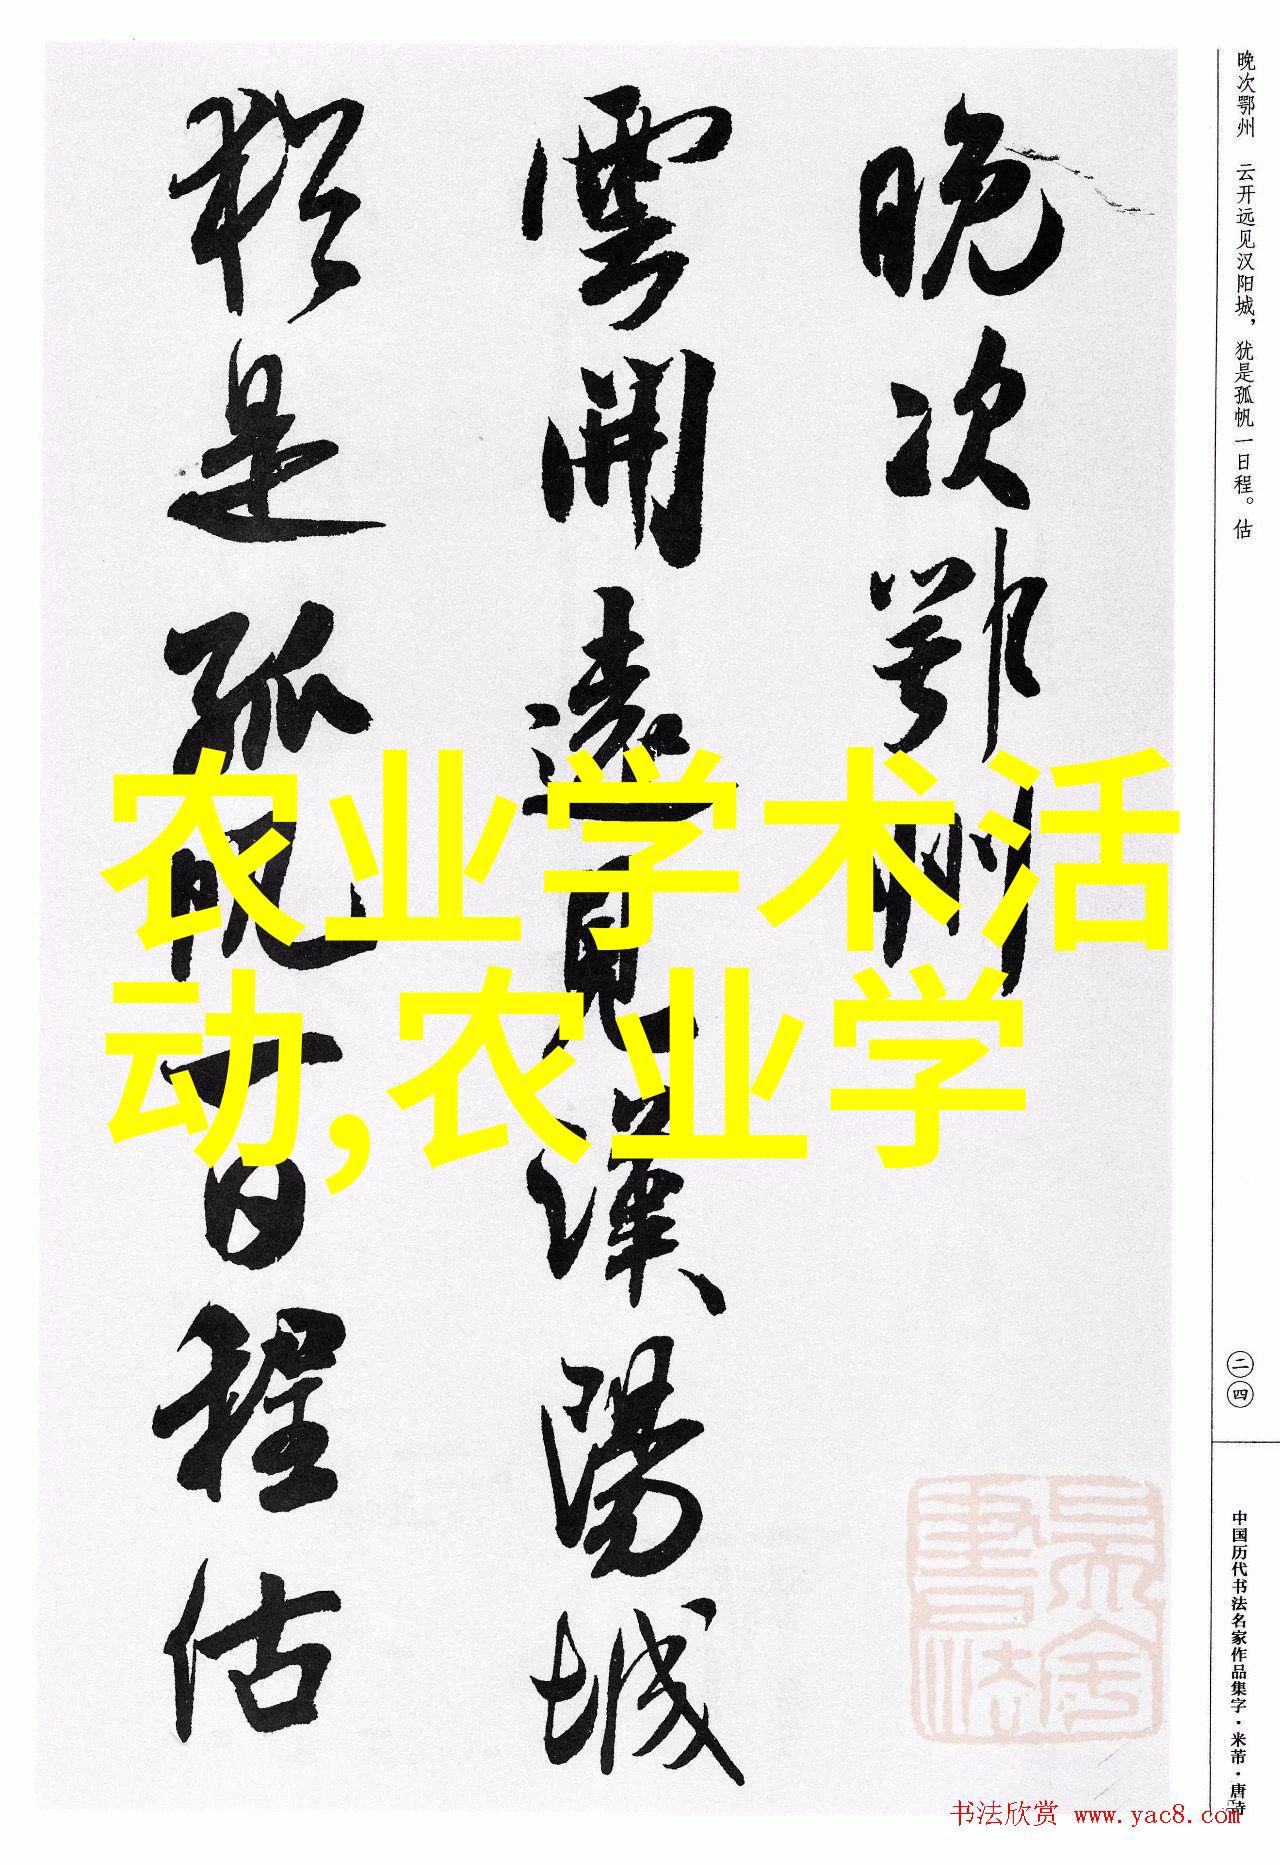 晚次鄂州
雲開遠見漢陽城
猶是孤帆一日程估
农业学术活
动,农业学
晚次鄂州　云开远见汉阳城，犹是孤帆一日程。估
二四
中国历代书法名家作品集字·米芾·唐诗
书法欣赏 www.yac8.com